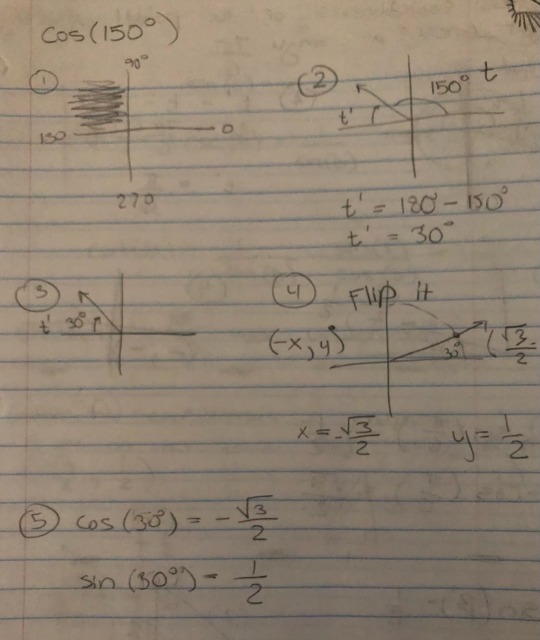 cos(150°)
①
90°
150
0
270
②
t
150°
t'
t' = 180 - 150°
t' = 30°
③
t' 30°
④ Flip It
(-x, y)
30°
(√3/2
x = -√3/2
y = 1/2
⑤ cos (30°) = -√3/2
sin (30°) = 1/2